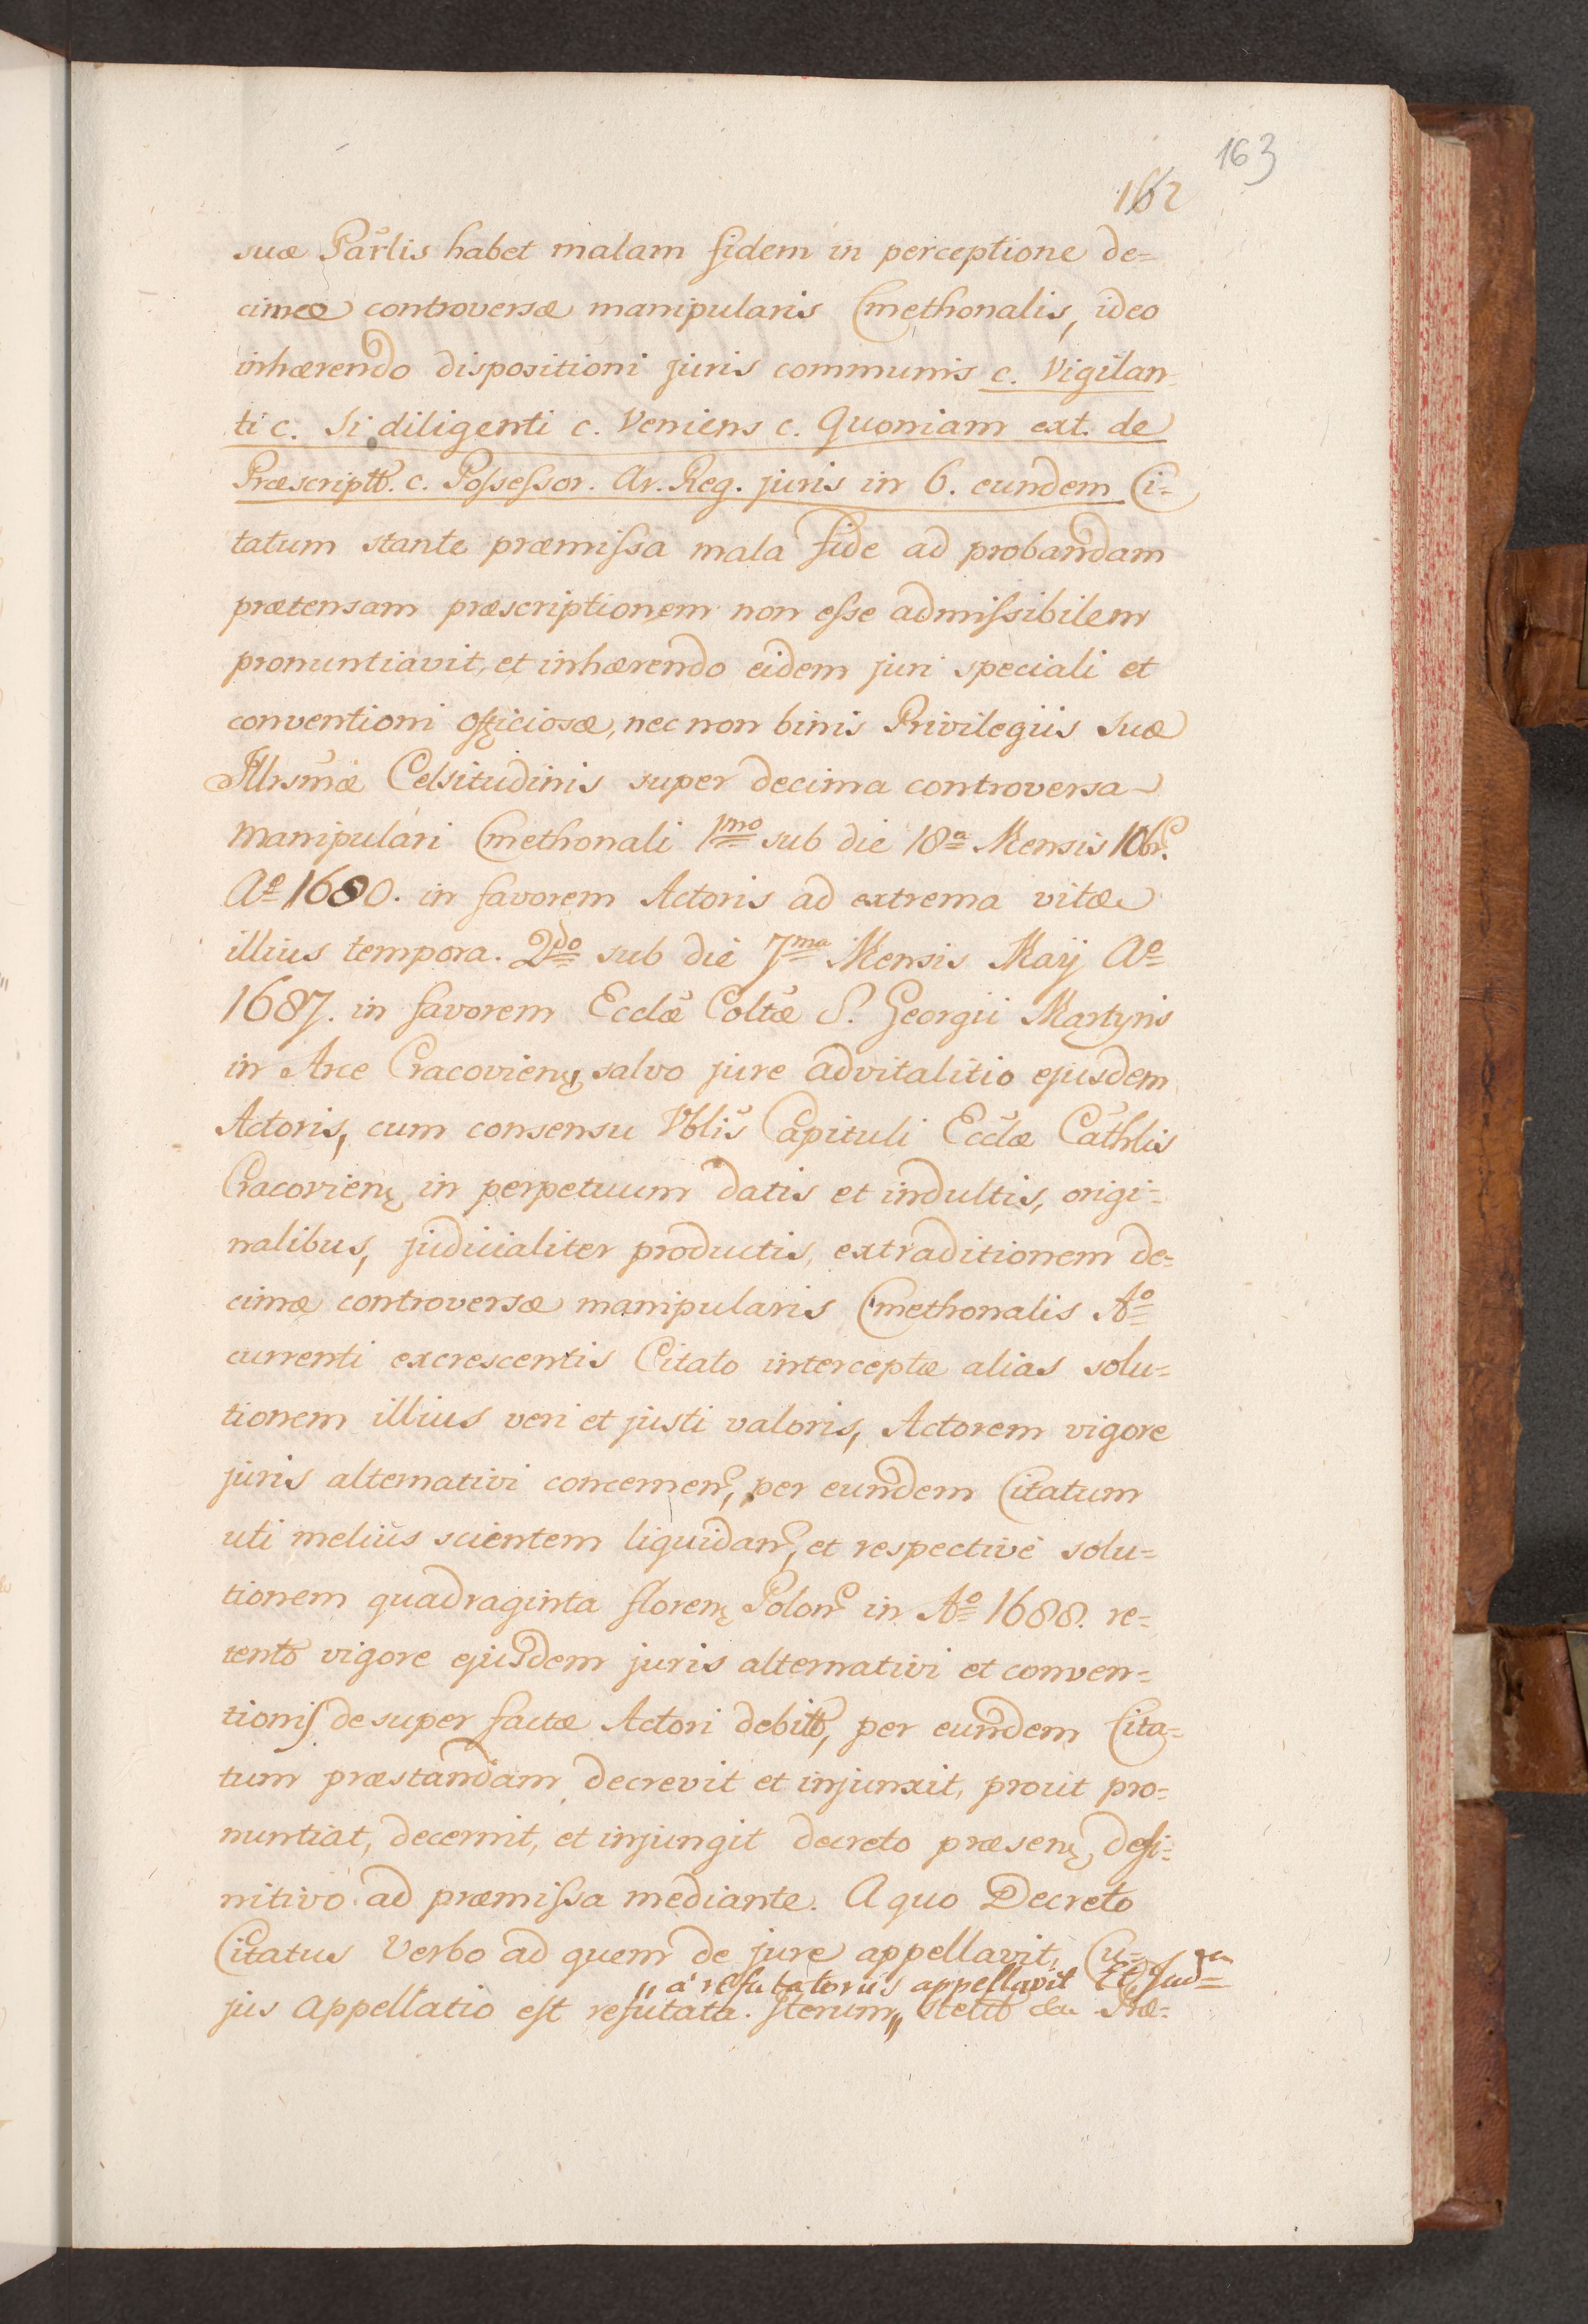 163
162
suæ Parlis habet malam fidem in perceptione de=
cimæ controversæ manipularis Cmethonalis, ideo
inhærendo dispositioni juris communis c. Vigilan
ti c. Si diligenti c. Veniens c. Quoniam ext. de
Præscriptb. c. Possessor. Ar. Reg. juris in 6. eundem Ci=
tatum stante præmissa mala fide ad probandam
prætensam præscriptionem non esse admissibilem
pronuntiavit, et inhærendo eidem juri speciali et
conventioni officiosæ, nec non binis Privilegiis Suæ
Illrsmæ Celsitudinis super decima controversa
manipulari Cmethonali 1mo sub die 18a Mensis 10br.
Ao 1680. in favorem Actoris ad extrema vitæ
illius tempora. 2do sub die 7ma Mensis Maij Ao
1687. in favorem Ecclæ Coltæ S. Georgii Martyris
in Arce Cracovien, salvo jure advitalitio ejusdem
Actoris, cum consensu Vblis Capituli Ecclæ Cathlis
Cracovien, in perpetuum datis et indultis, origi=
nalibus, judicialiter productis, extraditionem de=
cimæ controversæ manipularis Cmethonalis Ao
currenti excrescentis Citato interceptæ alias solu=
tionem illius veri et justi valoris, Actorem vigore
juris alternativi concernen, per eundem Citatum
uti melius scientem liquidan, et respective solu=
tionem quadraginta floren Polon in Ao 1688. re=
tento vigore ejusdem juris alternativi et conven=
tionis desuper factæ Actori debitb, per eundem Cita=
tum præstandam decrevit et injunxit, prout pro=
nuntiat, decernit, et injungit decreto præsen, defi=
nitivo ad præmissa mediante. A quo Decreto
Citatus Verbo ad quem de jure appellavit, Cu=
„ à refutatoriis appellavit Et Jud=
jus appellatio est refutata. Iterum„ Præ=